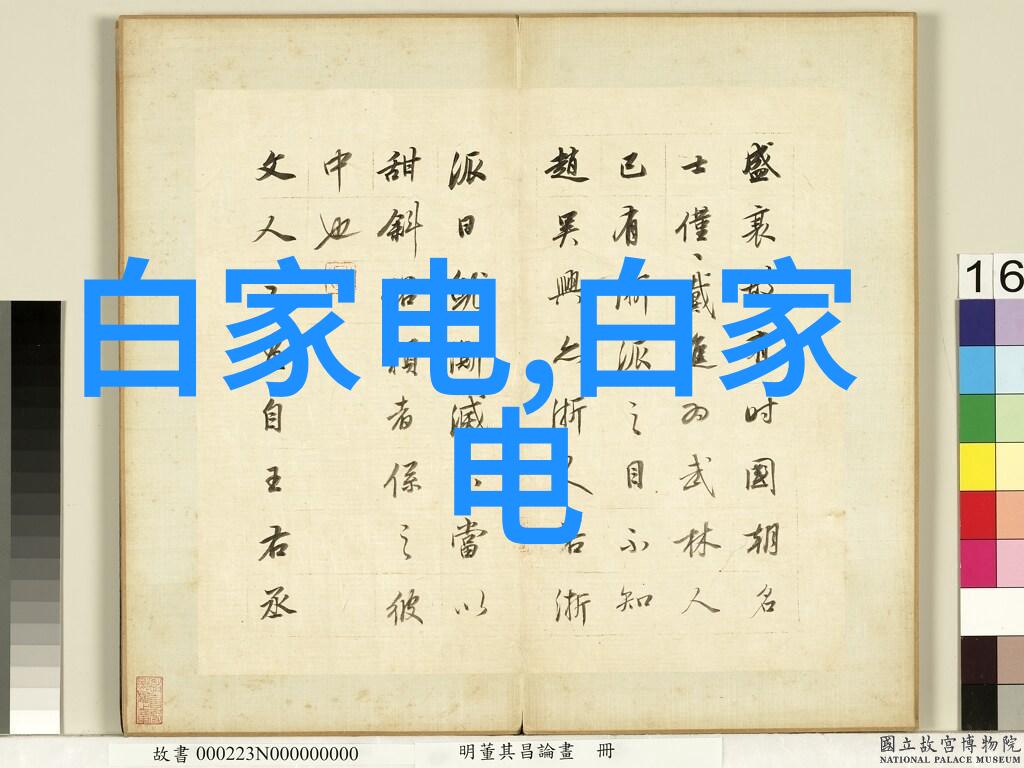 白家电,白家
电
盛衰有時國朝名
士僅、戴進為武林人
已有浙派之目不知
趙吳興亦浙人若浙
派日就澌滅、當以
甜斜俗賴者係之彼
中也
文人之畫自王右丞
16
故書 000223N000000000
明董其昌論畫 冊
國立故宮博物院
NATIONAL PALACE MUSEUM